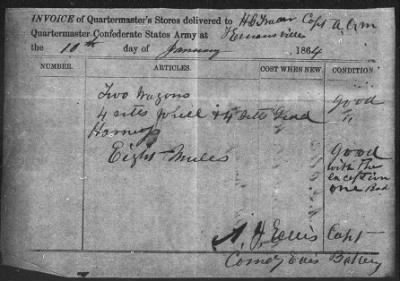 INVOICE of Quartermaster's Stores delivered to H C Capt A.Q.M
Quartermaster Confederate States Army at Kenansville
the 10th day of January 1864
NO. ARTICLES. COST WHEN NEW. CONDITION.
Two Wagons good
4 sets wheel & 4 sets lead "
Harness
Eight Mules good
with the
exception
one Bad
A. J. Ellis Capt
Battery